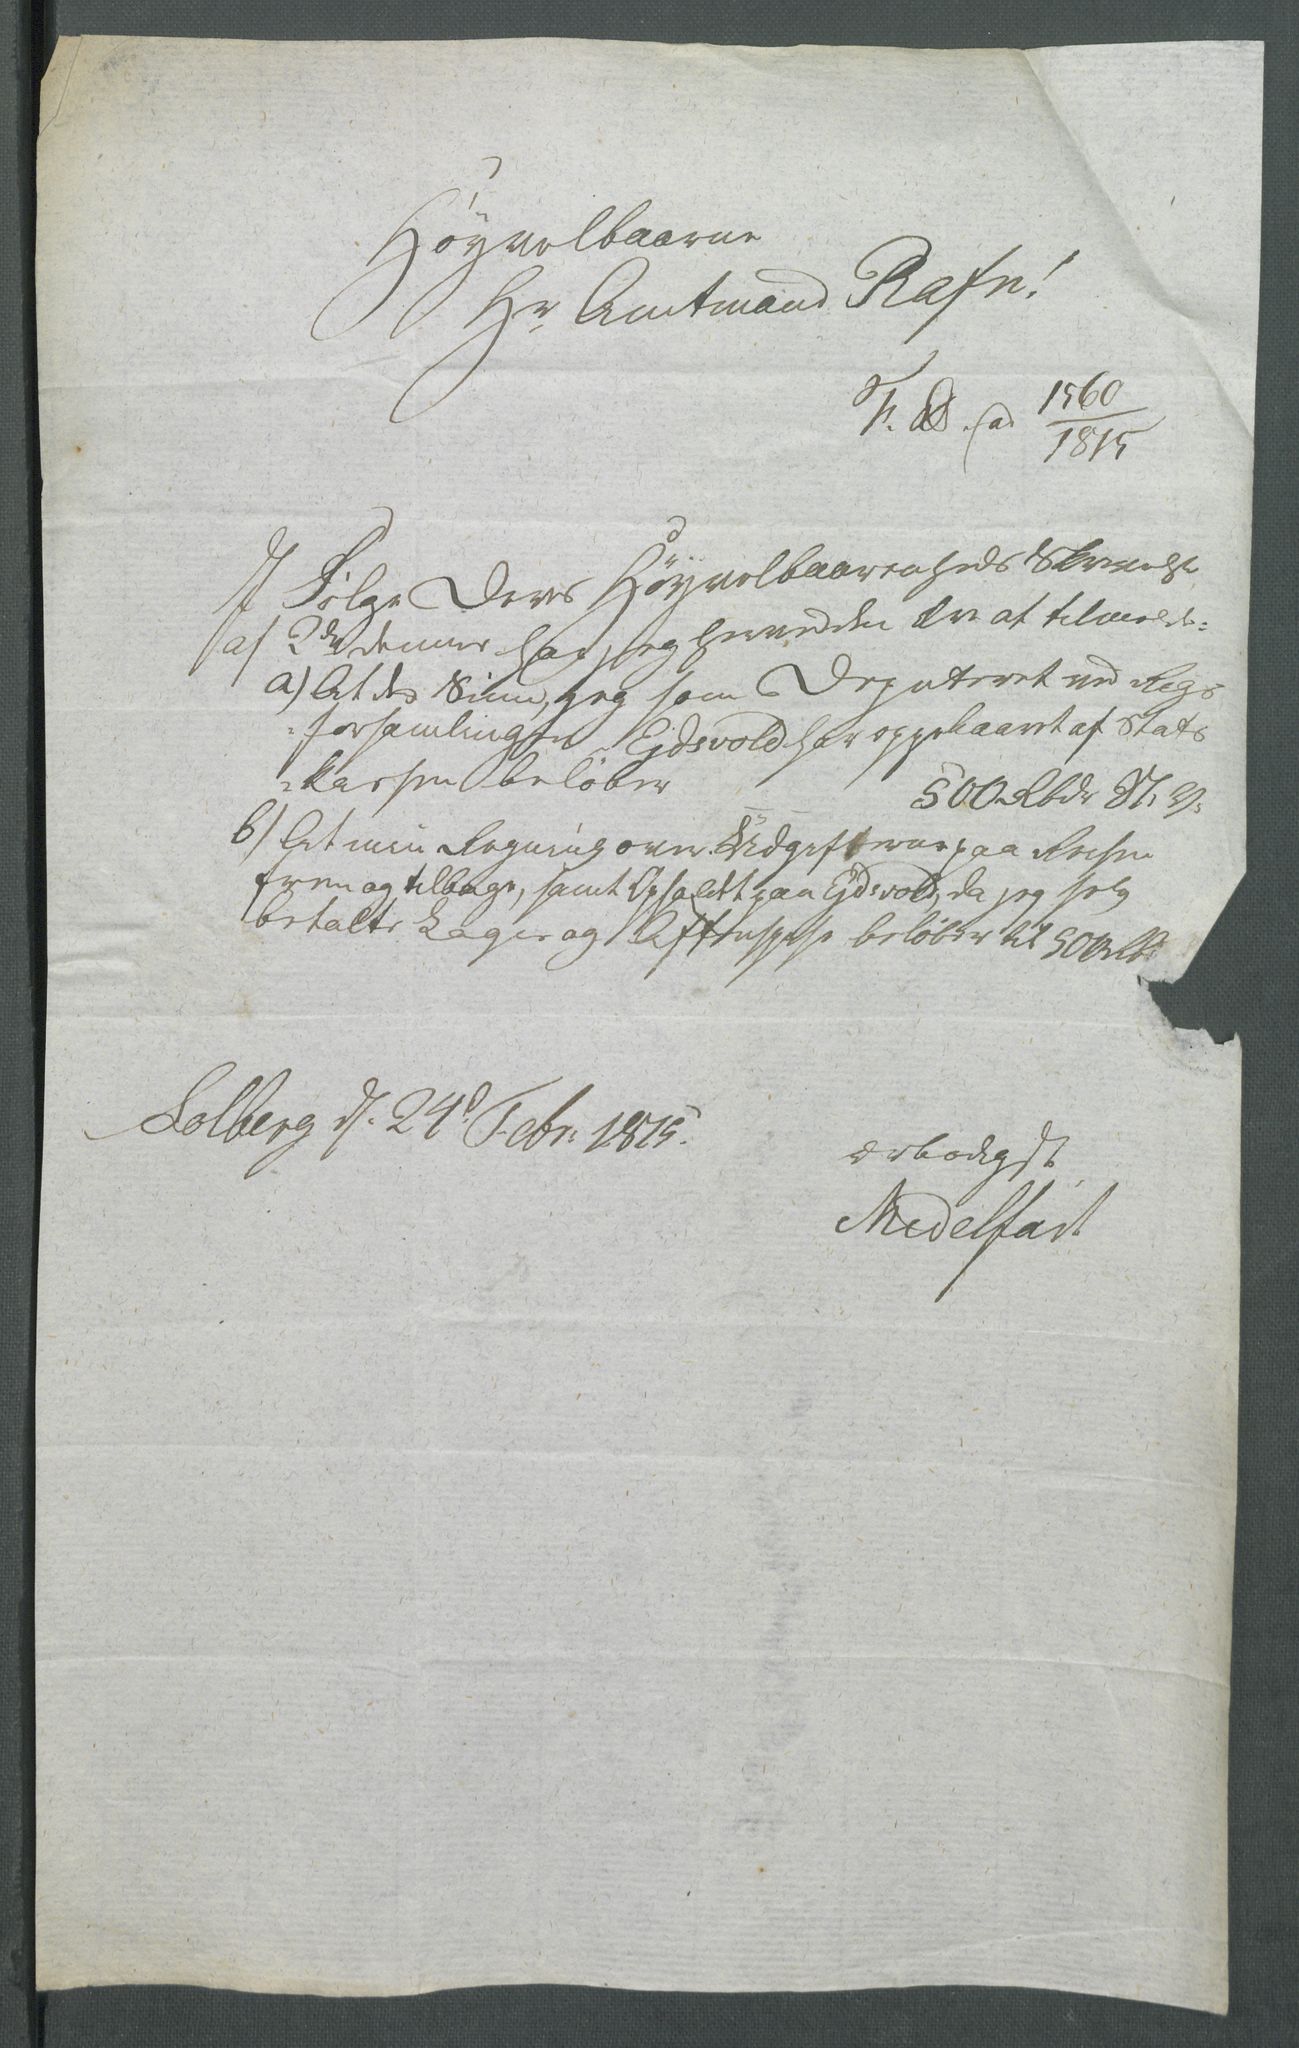 Höyvelbaarne
Hr Amtmand Rafn!
F. D. ad 1560
1815
I Følge Deres Höyvelbaarenheds Skrivelse
af 2den dennes har jeg herved den Ære at tilmelde:
a) At den Sum, jeg som Deputeret ved Rigs
=forsamlingen Ejdsvold har oppebaaret af Stats
=kassen beløber 500 Rbdr N. V.
b) At min Regning over Udgifterne paa Reisen
frem og tilbage, samt Opholdt paa Ejdsvold, da jeg selv
betalte Logie og Aftenspise beløber til 500 Rbd
Solberg d. 24d Febr: 1815.
ærbødigst
Midelfart